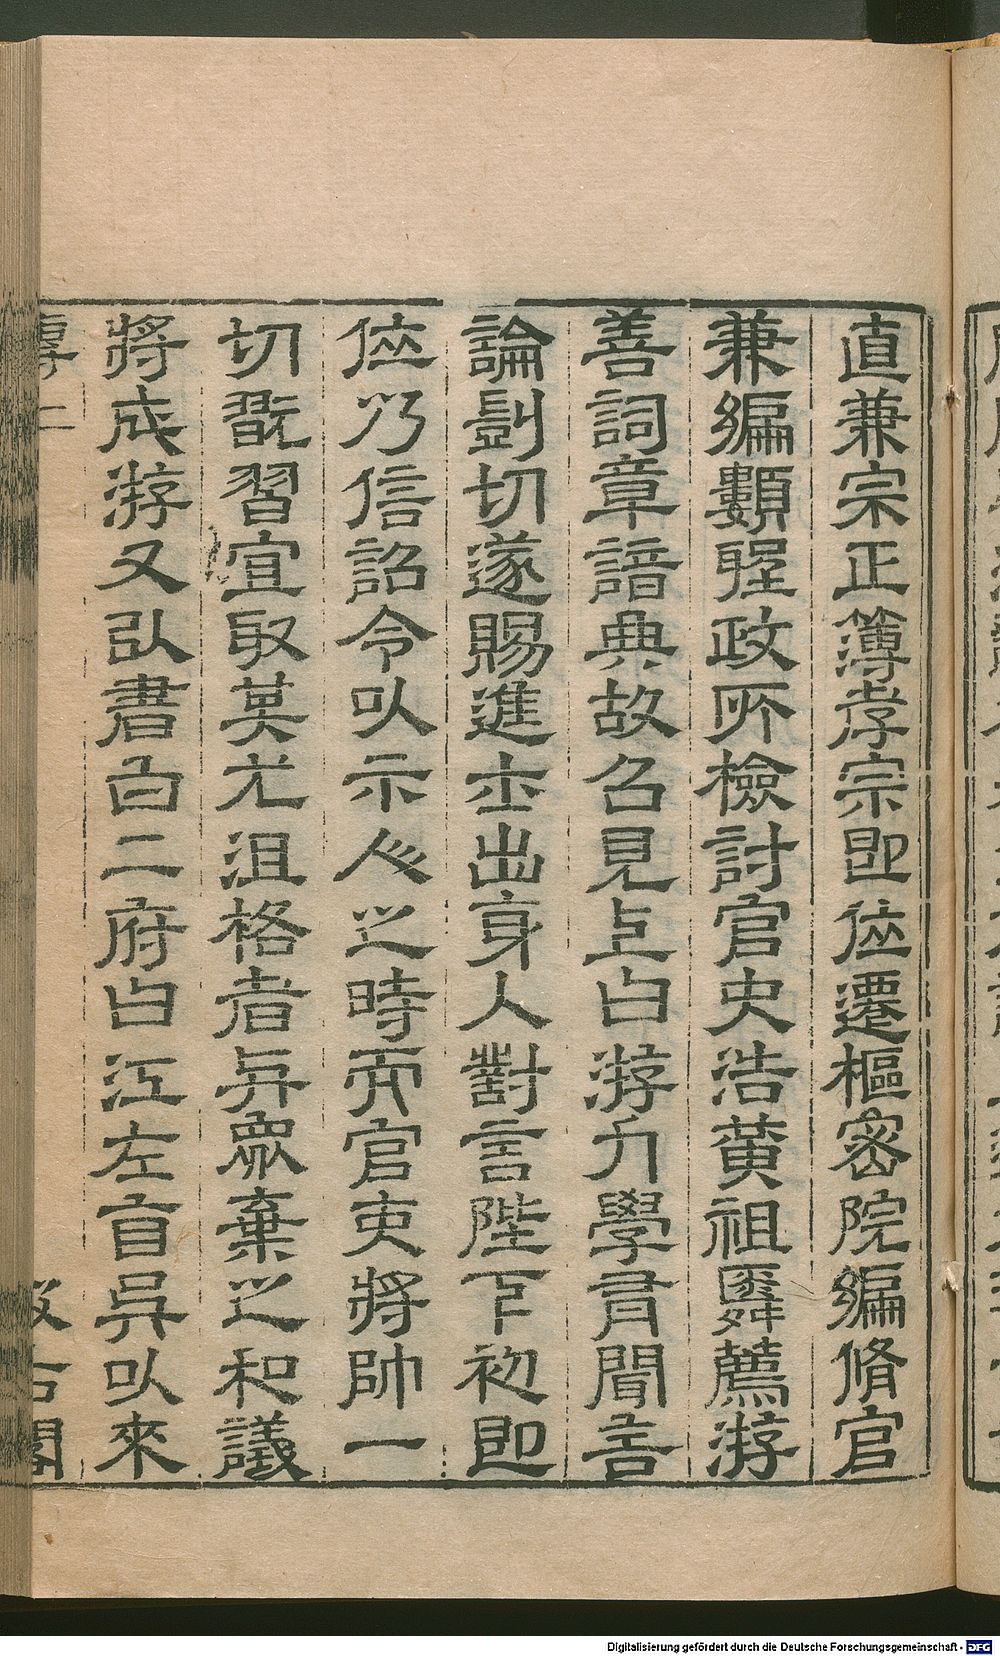 直兼宗正簿孝宗即位遷樞密院編脩官
兼編類聖政所檢討官史浩黃祖舜薦游
善詞章諳典故召見上曰游力學有聞言
論剴切遂賜進士出身入對言陛下初即
位乃信詔令以示人之時而官吏將帥一
切翫習宜取其尤沮格者與眾棄之和議
將成游又以書白二府曰江左自吳以來
傳 二
汲古閣
Digitalisierung gefördert durch die Deutsche Forschungsgemeinschaft - DFG